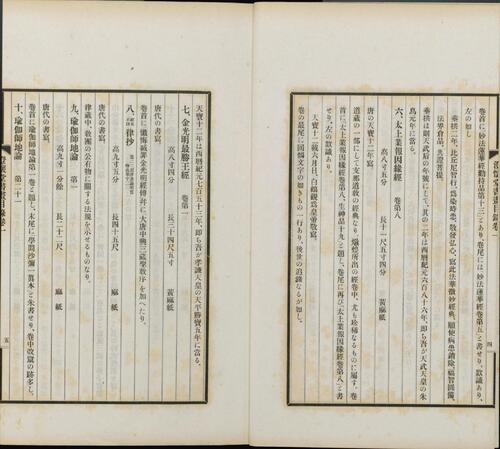 卷首に妙法蓮華經勸持品第十三とあり、卷尾には妙法蓮華經卷第五と書せり、款識あり、
左の如し
垂拱二年、比丘尼智行、爲染時患、敬發弘心、寫此法華微妙經典、願使病患銷除、福智圓備、
法界倉品、共證菩提、
垂拱は則天武后の年號にして、其の二年は西曆紀元六百八十六年、即ち吾が天武天皇の朱
鳥元年に當る。
六、太上業報因緣經 卷第八
高八寸五分 長十一尺五寸四分 黃麻紙
唐の天寶十二年寫
道藏の一部にして支那道敎の經典なり、燉煌所出の經卷中、尤も珍稀なるものに屬す、卷
首に、太上業報因緣經卷第八、生神品十九と題し、卷尾に再び太上業報因緣經卷第八と書
せり、左の款識あり、
天寶十二載六月日、白鶴觀爲皇帝敬寫、
卷の最尾に囘鶻文字の如きもの一行あり、後世の追錄なるが如し、
四
天寶十二年は西曆紀元七百五十三年、即ち吾が孝謙天皇の天平勝寶五年に當る、
七、金光明最勝王經 卷第一
高八寸四分 長二十四尺五寸 黃麻紙
唐代の書寫、
卷首に、懺悔滅罪金光明經傳幷に、大唐中興三藏聖敎序を加へたり、
八、律抄
高九寸五分 長四十五尺 麻紙
唐代の書寫、
律藏中、敎團の公有物に關する法規を示せるものなり、
九、瑜伽師地論 第一
高九寸一分餘 長二十二尺 麻紙
唐代の書寫、
卷首に瑜伽師地論第一卷と題し、末尾に學問沙彌一眞本と朱書せり、卷中改竄の跡多し、
十、瑜伽師地論 第二十一
五